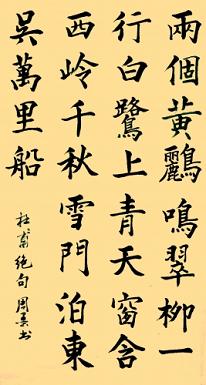 兩個黃鸝鳴翠柳一
行白鷺上青天窗含
西岭千秋雪門泊東
吳萬里船
杜甫绝句 周书